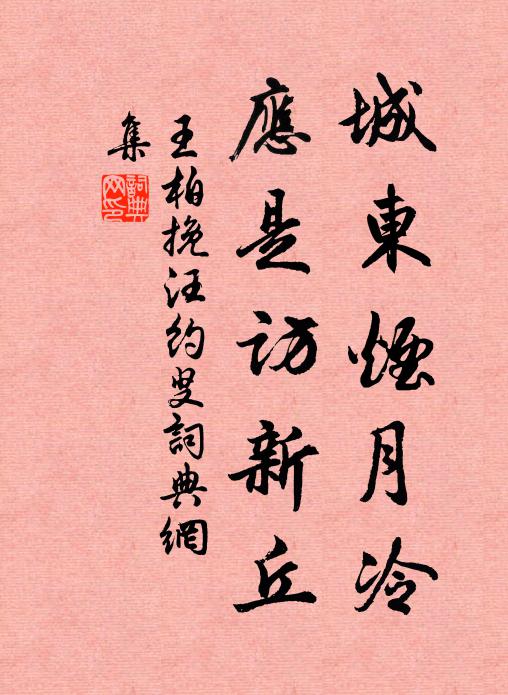 城東煙月冷
應是訪新丘
王柏挽汪約叟詞典網
集
詞典網印